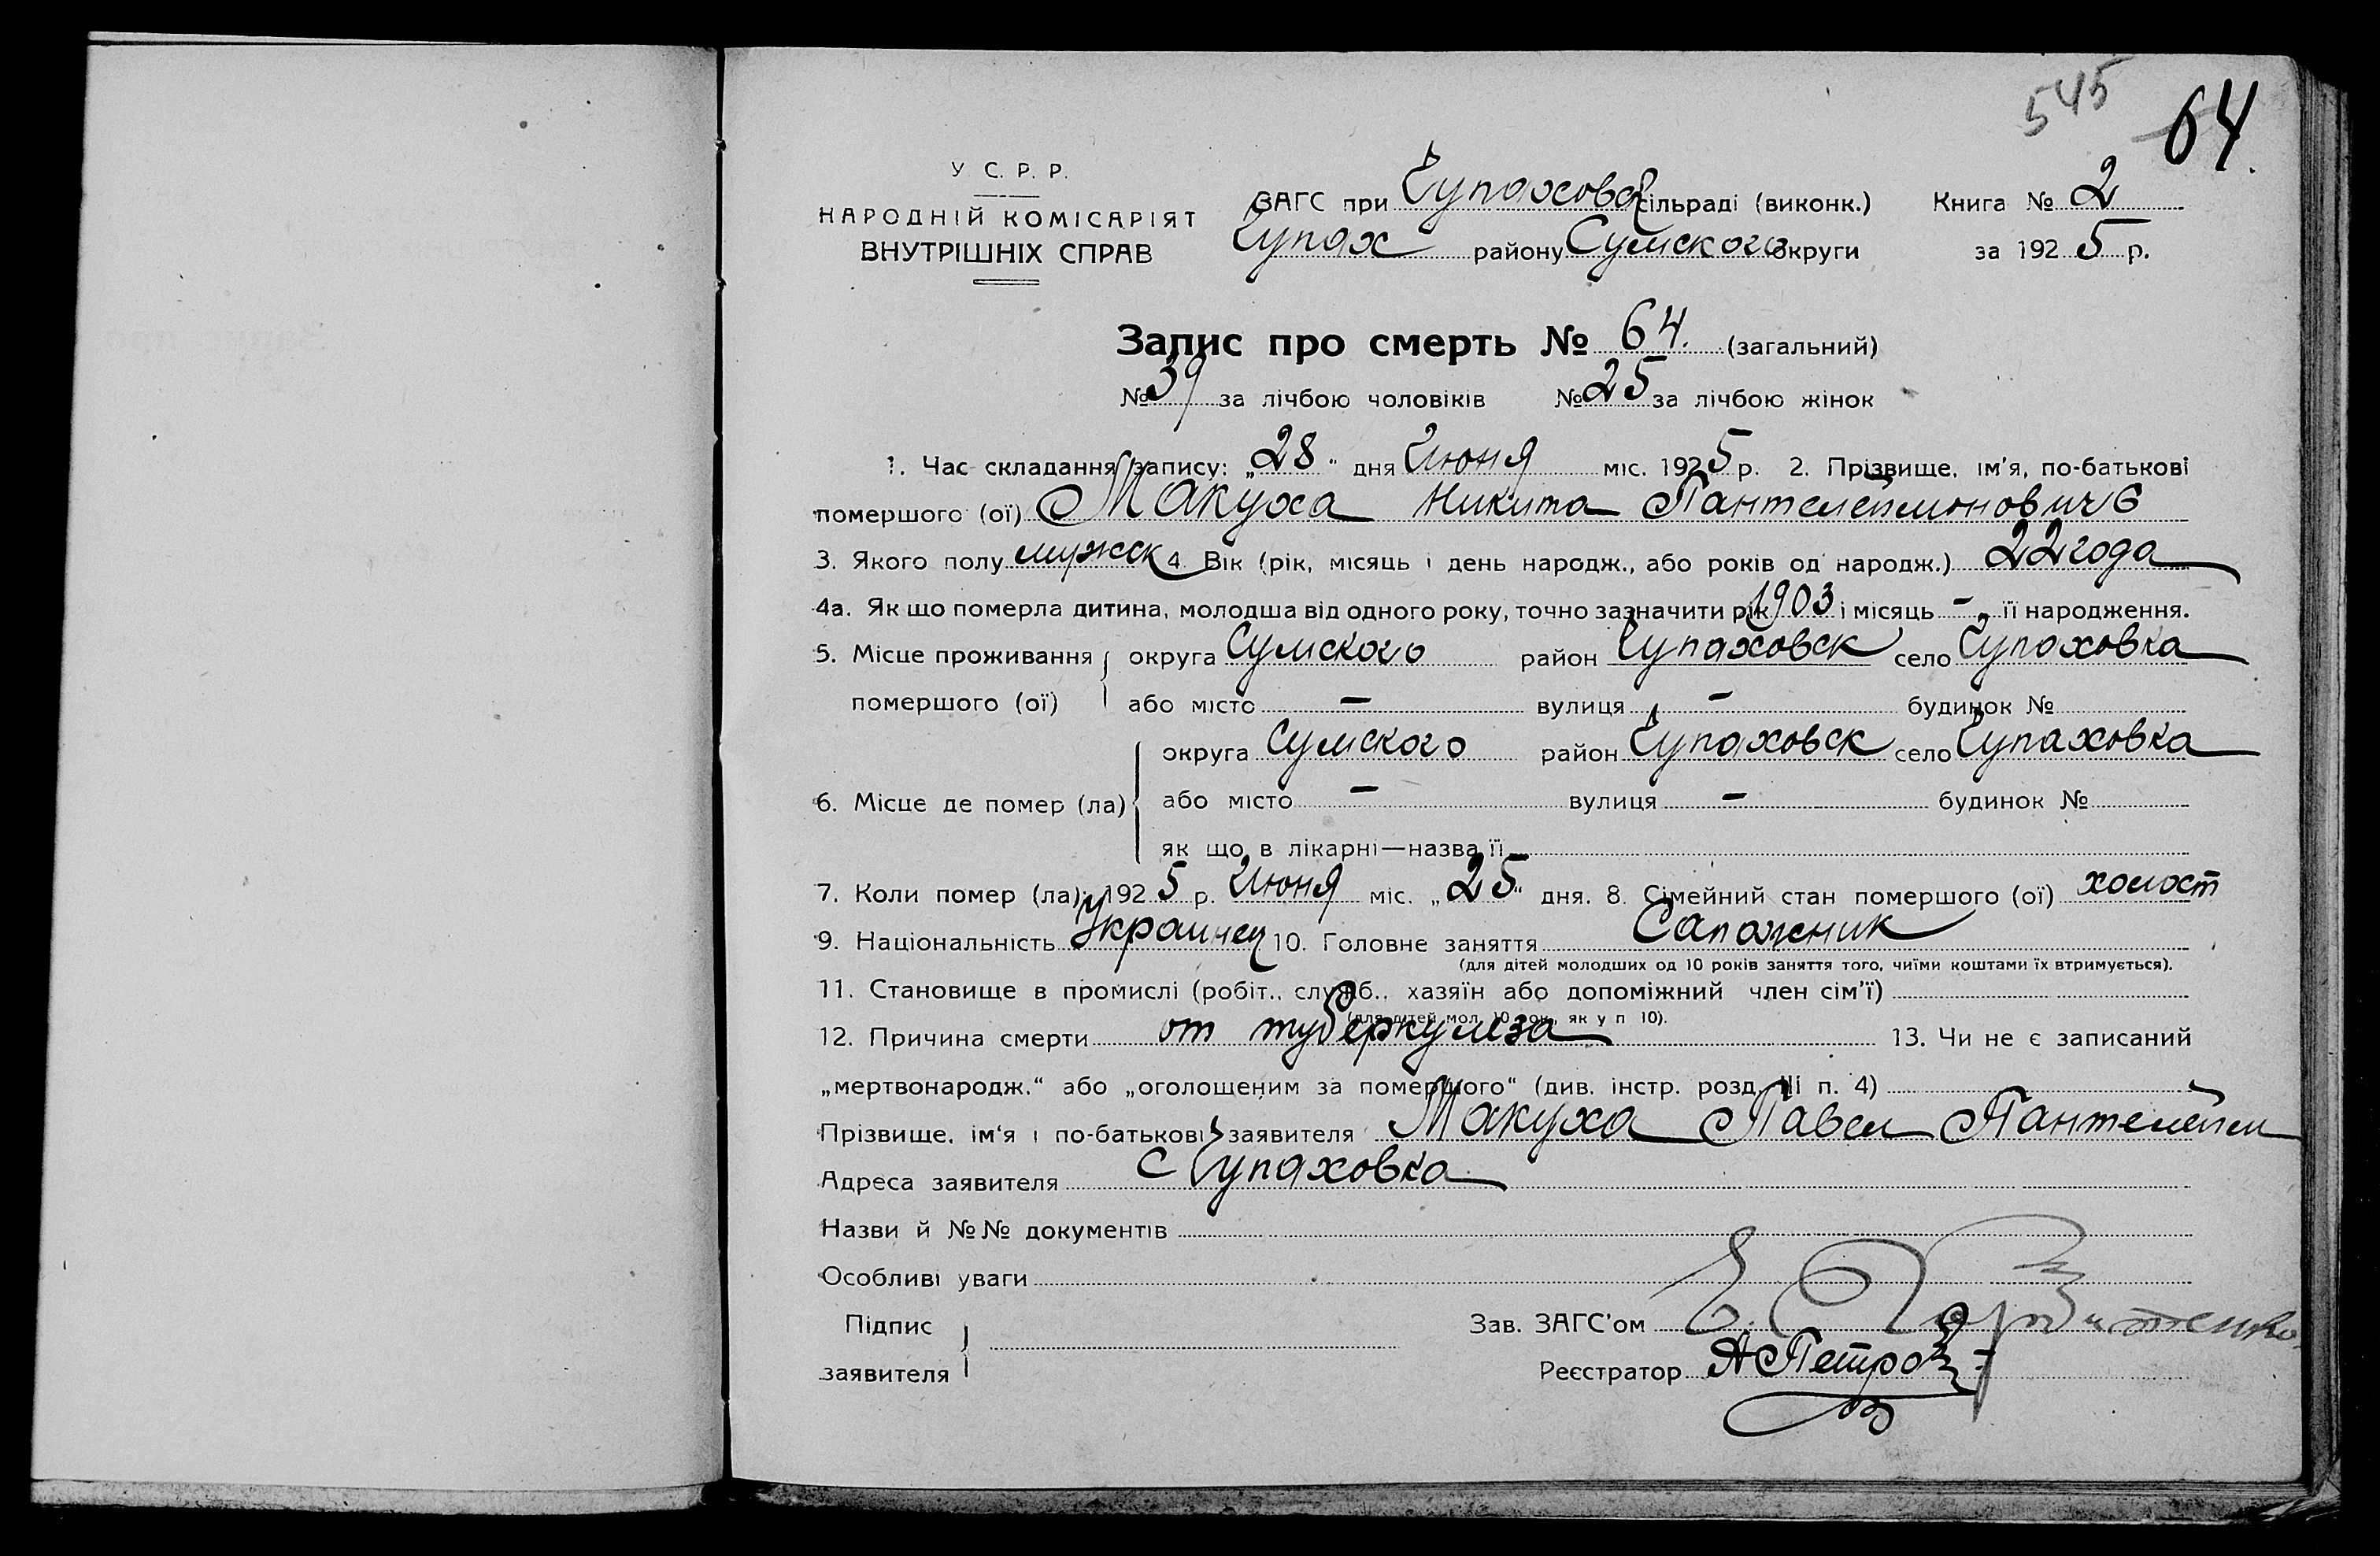 545 64.
У С. Р. Р.
НАРОДНІЙ КОМІСАРІЯТ
ВНУТРІШНІХ СПРАВ
ЗАГС при Чупаховс сільраді (виконк.) Книга № 2
Чупах району Сумского округи за 1925 р.
Запис про смерть № 64. (загальний)
№ 39 за лічбою чоловіків № 25 за лічбою жінок
1. Час складання запису: „28“ дня Июня міс. 1925 р. 2. Прізвище, ім'я, по-батькові
помершого (ої) Макуха Никита Пантелеймонович
3. Якого полу мужск 4. Вік (рік, місяць і день народж., або років од народж.) 22 года
4а. Як що померла дитина, молодша від одного року, точно зазначити рік 1903 і місяць - „ її народження.
5. Місце проживання округа Сумского район Чупаховск село Чупаховка
помершого (ої) або місто - вулиця - будинок №
округа Сумского район Чупаховск село Чупаховка
6. Місце де помер (ла) або місто - вулиця - будинок №
як що в лікарні—назва її
7. Коли помер (ла): 1925 р. Июня міс. „25“ дня. 8. Сімейний стан помершого (ої) холост
9. Національність Украинец 10. Головне заняття Сапожник
(для дітей молодших од 10 років заняття того, чиїми коштами їх втримується).
11. Становище в промислі (робіт., служб., хазяїн або допоміжний член сім'ї)
(для дітей мол. 10 рок., як у п 10).
12. Причина смерти от туберкулеза 13. Чи не є записаний
„мертвонародж.“ або „оголошеним за помершого“ (див. інстр. розд. III п. 4)
Прізвище, ім'я і по-батькові заявителя Макуха Павел Пантелейм
Адреса заявителя с Чупаховка
Назви й №№ документів
Особливі уваги
Підпис Зав. ЗАГС'ом
заявителя Реєстратор АПетров